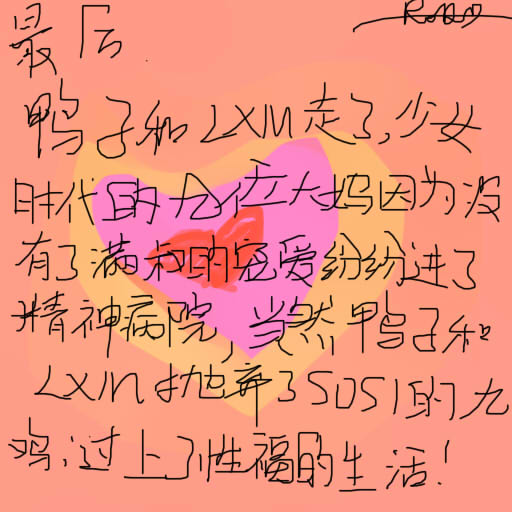 最后
鸭子和LXM走了,少女
时代的九位大妈因为没
有了满叔的宠爱纷纷进了
精神病院,当然鸭子和
LXM抛弃了SOSI的九
鸡,过上了性福的生活!